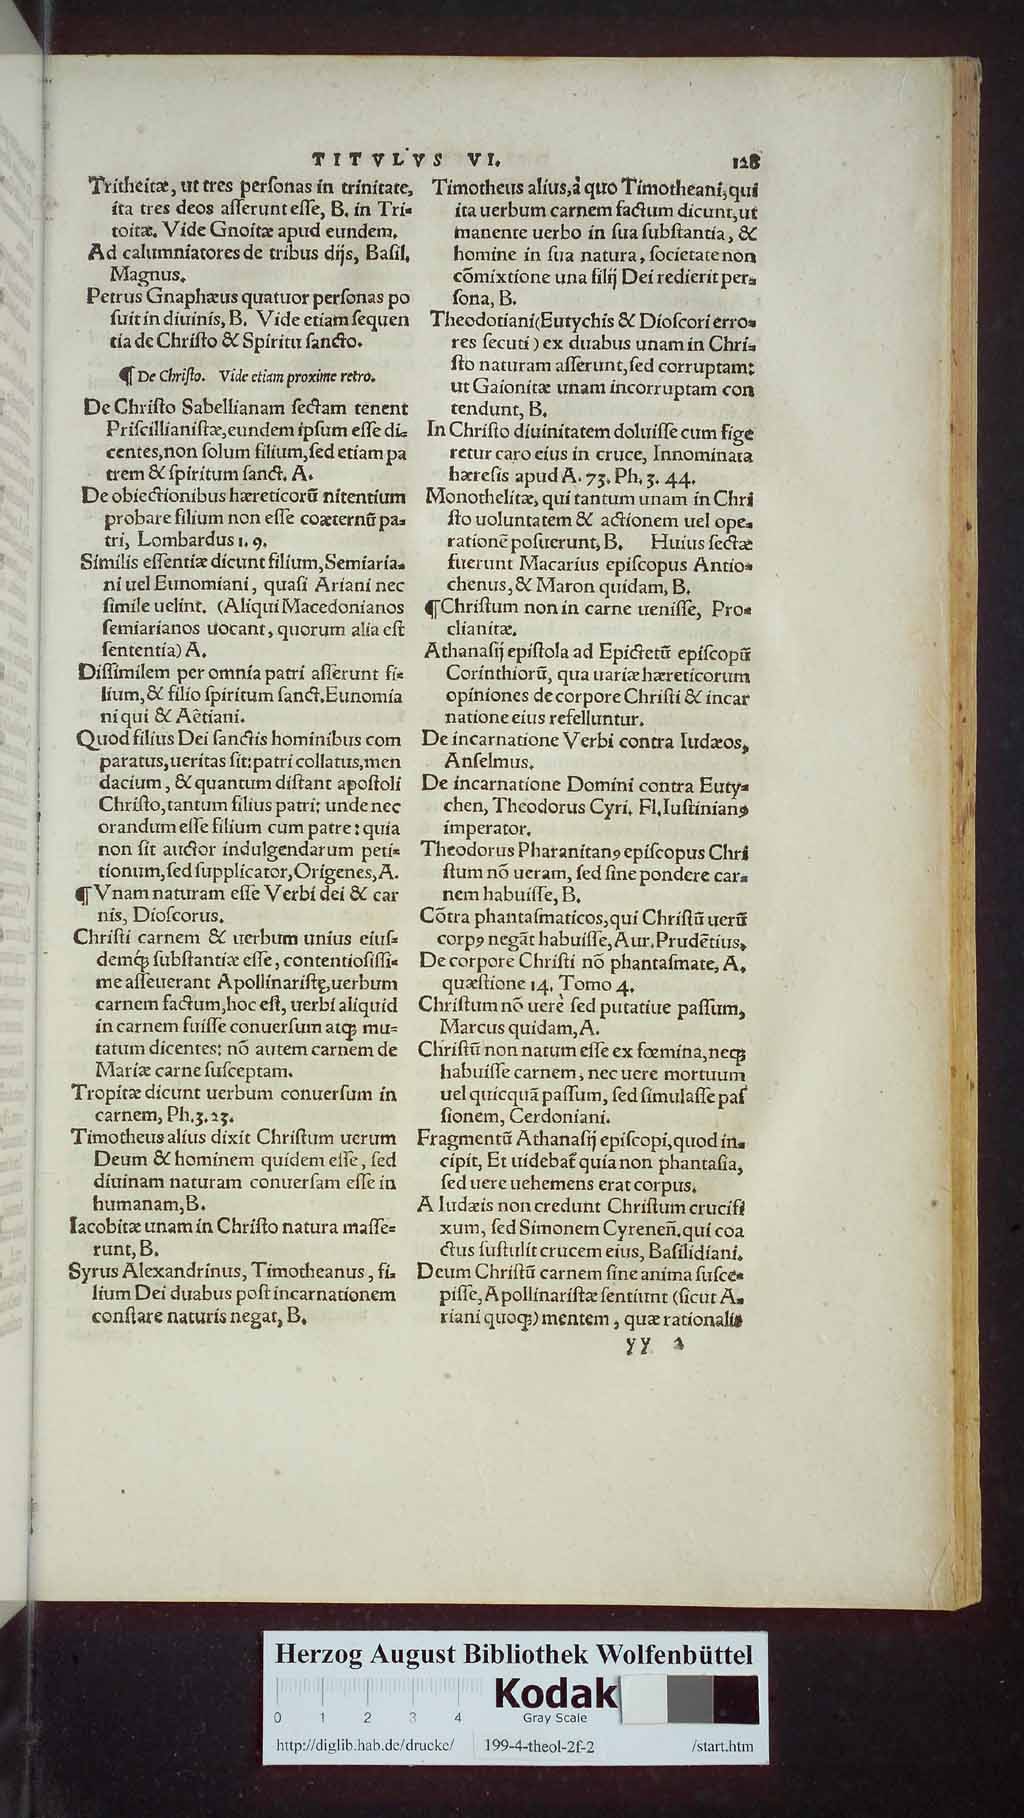 TITVLVS VI. 128
Tritheitæ, ut tres perſonas in trinitate,
ita tres deos aſſerunt eſſe, B. in Tri-
toitæ. Vide Gnoitæ apud eundem.
Ad calumniatores de tribus dijs, Baſil.
Magnus.
Petrus Gnaphæus quatuor perſonas po
ſuit in diuinis, B. Vide etiam ſequen
tia de Chriſto & Spiritu ſancto.
¶ De Chriſto. Vide etiam proxime retro.
De Chriſto Sabellianam ſectam tenent
Priſcillianiſtæ, eundem ipſum eſſe di-
centes, non ſolum filium, ſed etiam pa
trem & ſpiritum ſanct. A.
De obiectionibus hæreticorũ nitentium
probare filium non eſſe coæternũ pa-
tri, Lombardus 1. 9.
Similis eſſentiæ dicunt filium, Semiaria-
ni uel Eunomiani, quaſi Ariani nec
ſimile uelint. (Aliqui Macedonianos
ſemiarianos uocant, quorum alia eſt
ſententia) A.
Diſſimilem per omnia patri aſſerunt fi-
lium, & filio ſpiritum ſanct. Eunomia
ni qui & Aëtiani.
Quod filius Dei ſanctis hominibus com
paratus, ueritas ſit: patri collatus, men
dacium, & quantum diſtant apoſtoli
Chriſto, tantum filius patri: unde nec
orandum eſſe filium cum patre: quia
non ſit auctor indulgendarum peti-
tionum, ſed ſupplicator, Origenes, A.
¶ Vnam naturam eſſe Verbi dei & car
nis, Dioſcorus.
Chriſti carnem & uerbum unius eiuſ-
demq́ꝫ ſubſtantiæ eſſe, contentioſiſſi-
me aſſeuerant Apollinariſtę, uerbum
carnem factum, hoc eſt, uerbi aliquid
in carnem fuiſſe conuerſum atqꝫ mu-
tatum dicentes: nõ autem carnem de
Mariæ carne ſuſceptam.
Tropitæ dicunt uerbum conuerſum in
carnem, Ph. 3. 23.
Timotheus alius dixit Chriſtum uerum
Deum & hominem quidem eſſe, ſed
diuinam naturam conuerſam eſſe in
humanam, B.
Iacobitæ unam in Chriſto natura maſſe-
runt, B.
Syrus Alexandrinus, Timotheanus, fi-
lium Dei duabus poſt incarnationem
conſtare naturis negat, B.
Timotheus alius, à quo Timotheani, qui
ita uerbum carnem factum dicunt, ut
manente uerbo in ſua ſubſtantia, &
homine in ſua natura, ſocietate non
cõmixtione una filij Dei redierit per-
ſona, B.
Theodotiani (Eutychis & Dioſcori erro-
res ſecuti) ex duabus unam in Chri-
ſto naturam aſſerunt, ſed corruptam:
ut Gaionitæ unam incorruptam con
tendunt, B.
In Chriſto diuinitatem doluiſſe cum fige
retur caro eius in cruce, Innominata
hæreſis apud A. 73. Ph. 3. 44.
Monothelitæ, qui tantum unam in Chri
ſto uoluntatem & actionem uel ope-
rationẽ poſuerunt, B. Huius ſectæ
fuerunt Macarius epiſcopus Antio-
chenus, & Maron quidam, B.
¶ Chriſtum non in carne ueniſſe, Pro-
clianitæ.
Athanaſij epiſtola ad Epictetũ epiſcopũ
Corinthiorũ, qua uariæ hæreticorum
opiniones de corpore Chriſti & incar
natione eius refelluntur.
De incarnatione Verbi contra Iudæos,
Anſelmus.
De incarnatione Domini contra Euty-
chen, Theodorus Cyri. Fl. Iuſtinianꝰ
imperator.
Theodorus Pharanitanꝰ epiſcopus Chri
ſtum nõ ueram, ſed ſine pondere car-
nem habuiſſe, B.
Cõtra phantaſmaticos, qui Chriſtũ uerũ
corpꝰ negãt habuiſſe, Aur. Prudẽtius.
De corpore Chriſti nõ phantaſmate, A.
quæſtione 14. Tomo 4.
Chriſtum nõ uerè ſed putatiue paſſum,
Marcus quidam, A.
Chriſtũ non natum eſſe ex fœmina, neqꝫ
habuiſſe carnem, nec uere mortuum
uel quicquã paſſum, ſed ſimulaſſe paſ
ſionem, Cerdoniani.
Fragmentũ Athanaſij epiſcopi, quod in-
cipit, Et uidebat̃ quia non phantaſia,
ſed uere uehemens erat corpus.
A Iudæis non credunt Chriſtum crucifi
xum, ſed Simonem Cyreneñ. qui coa
ctus ſuſtulit crucem eius, Baſilidiani.
Deum Chriſtũ carnem ſine anima ſuſce-
piſſe, Apollinariſtæ ſentiunt (ſicut A-
riani quoqꝫ) mentem, quæ rationalis
yy 2
Herzog August Bibliothek Wolfenbüttel
Kodak
Gray Scale
0 1 2 3 4
http://diglib.hab.de/drucke/ 199-4-theol-2f-2 /start.htm